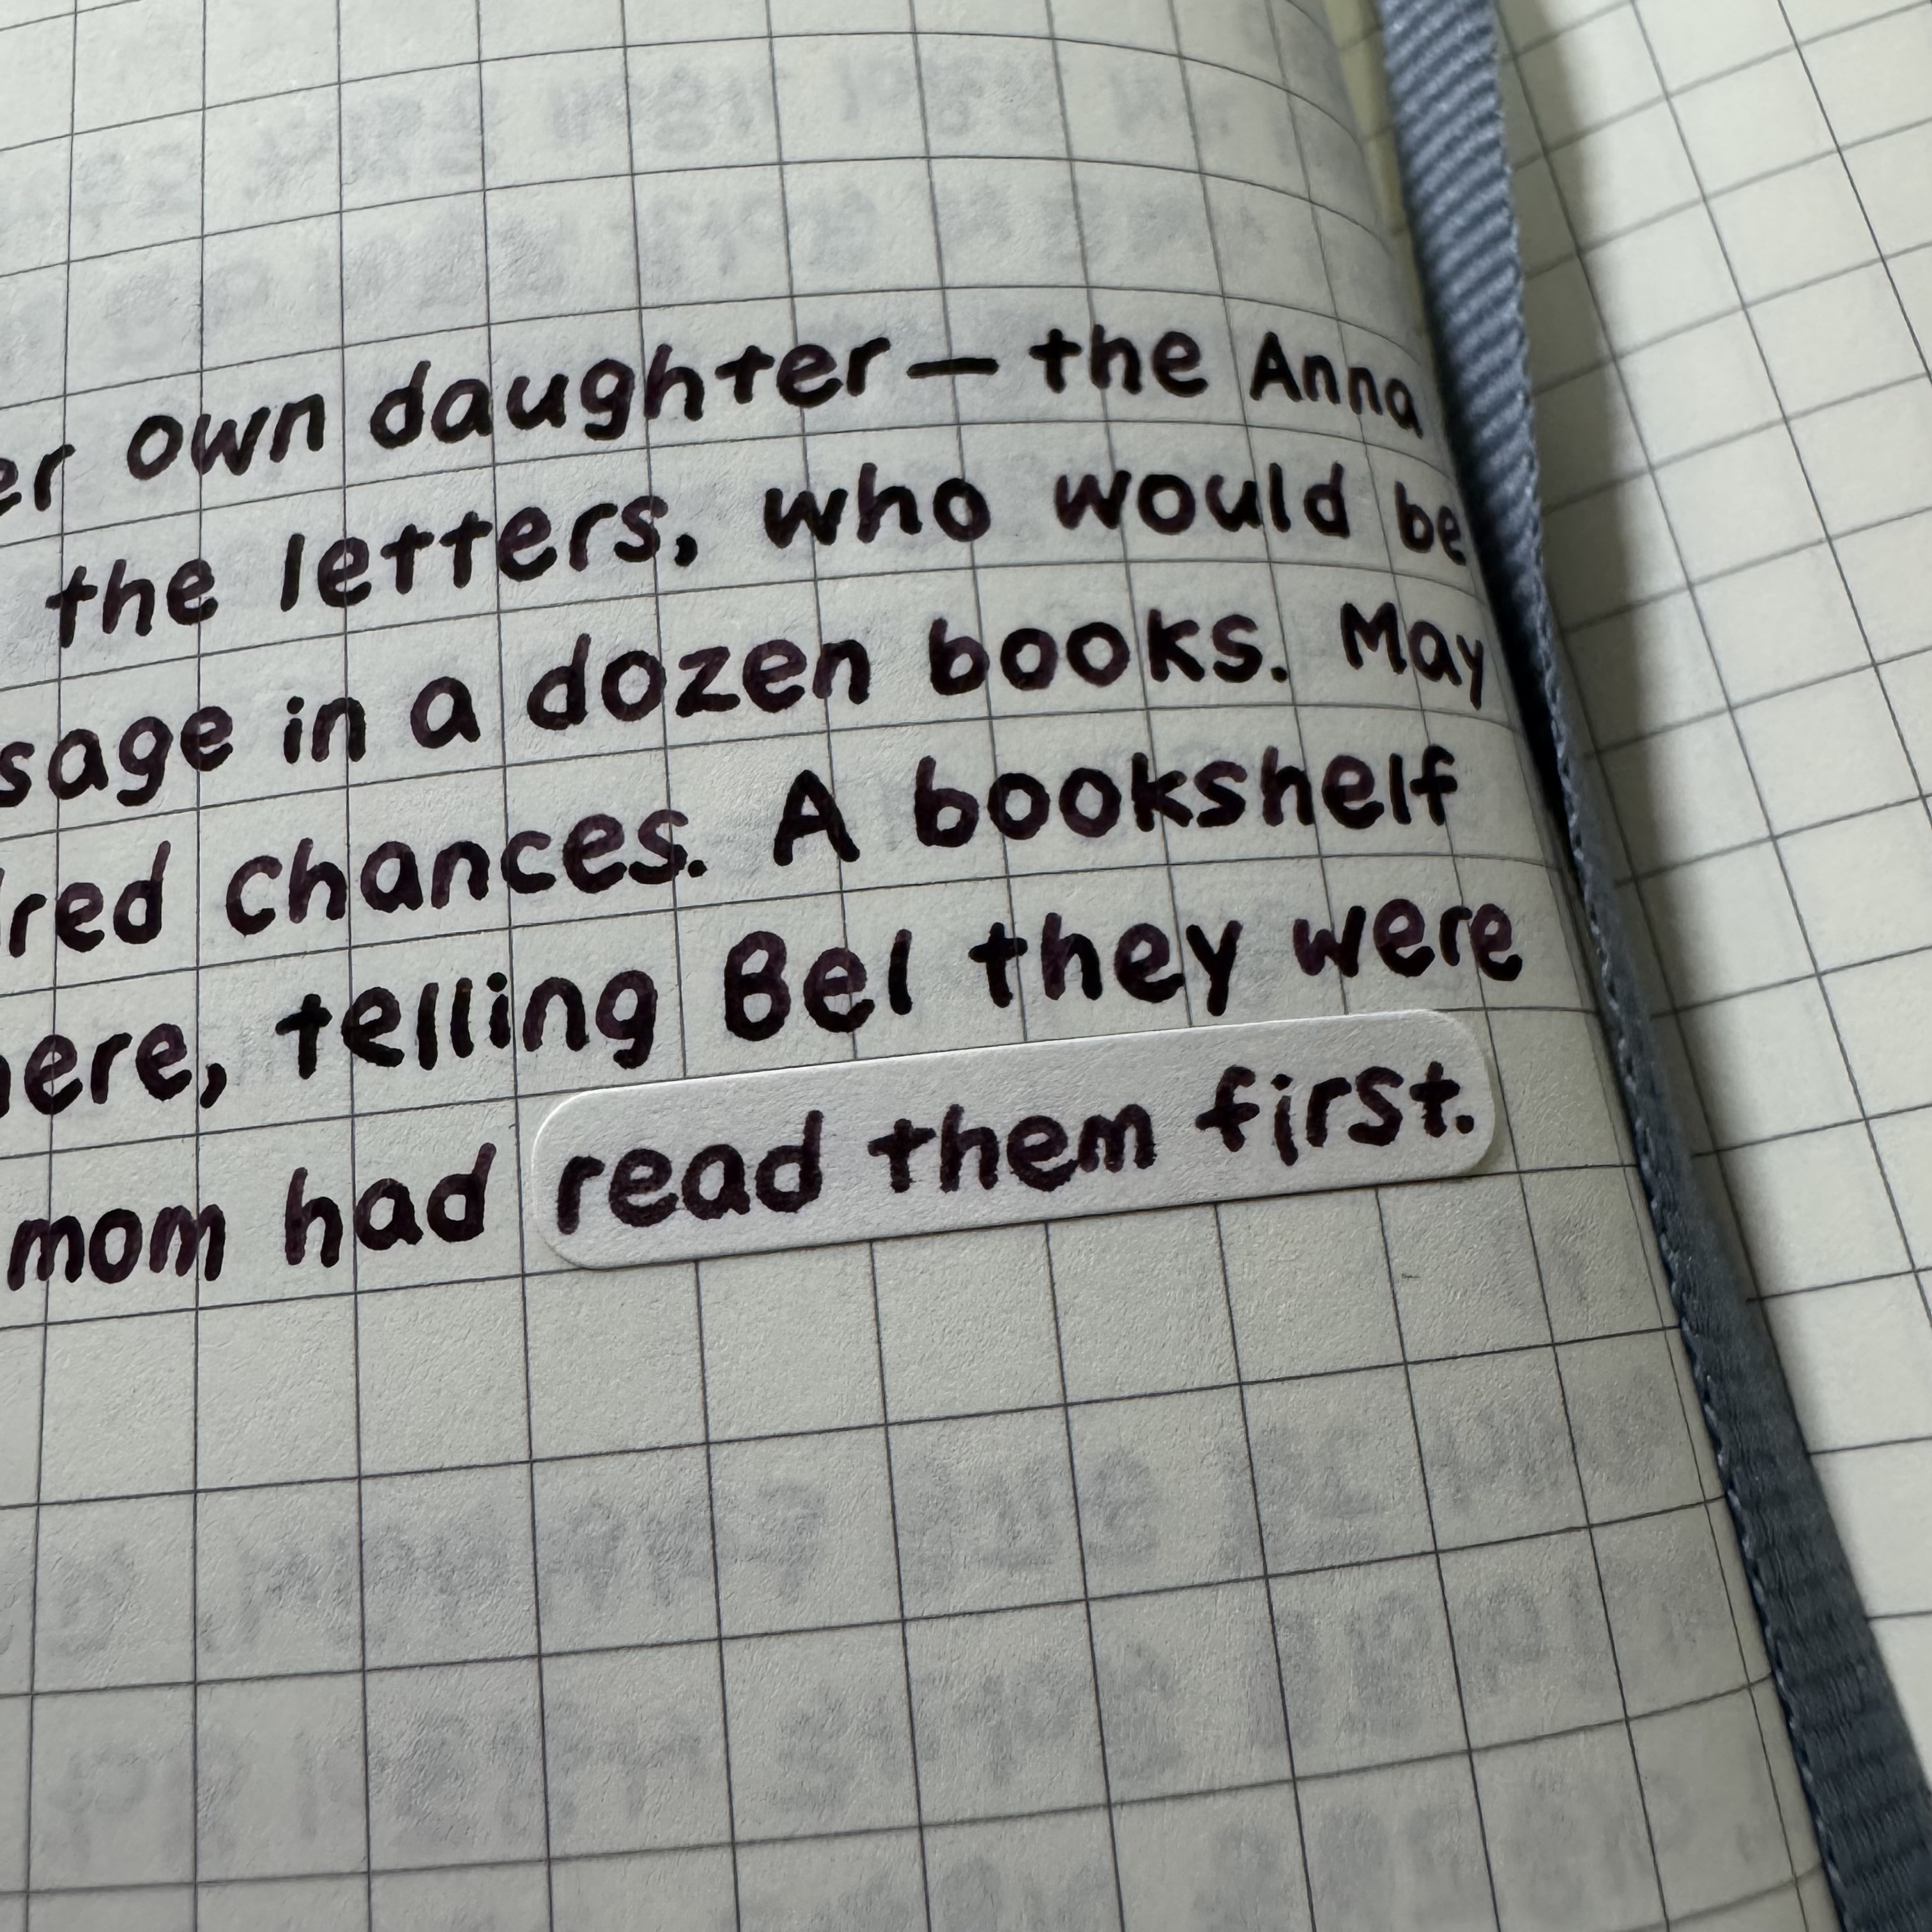 own daughter — the Anna
the letters, who would be
in a dozen books. May
chances. A bookshelf
telling Bel they were
mom had read them first.